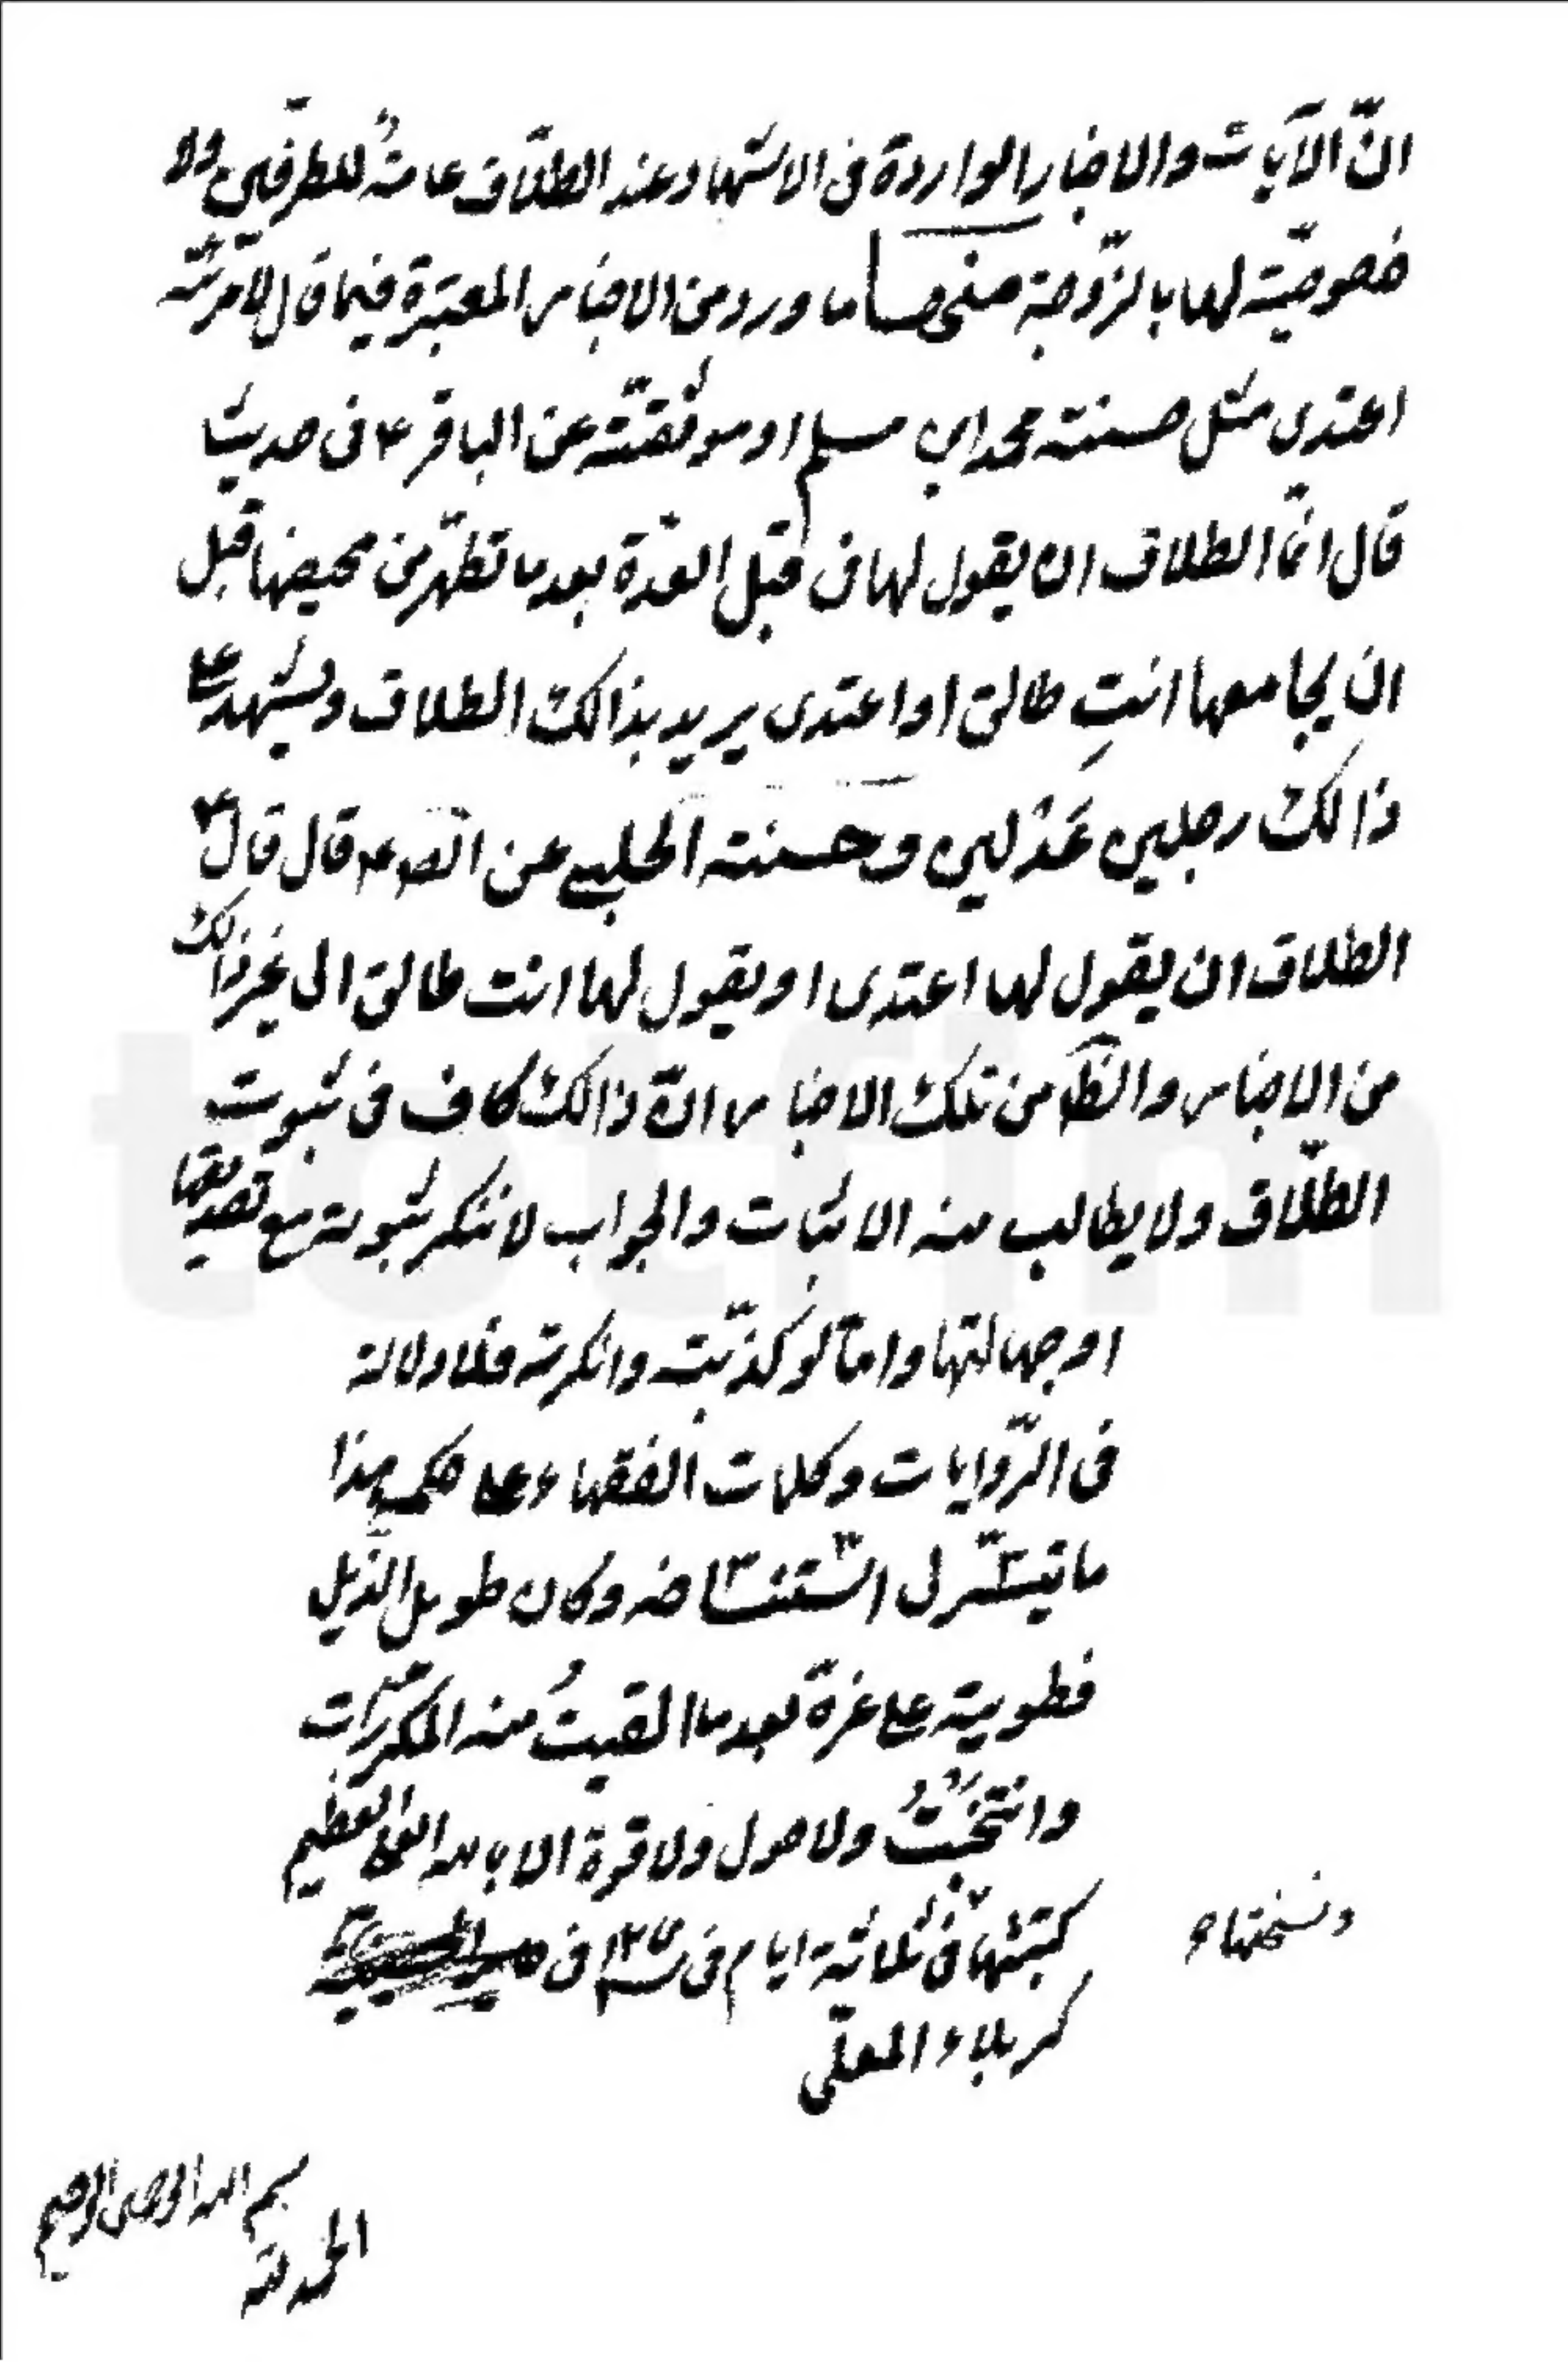 انّ الآيات والاخبار الواردة فى الاشهاد عند الطلاق عامّة للطرفين ولا
خصوصيّة لها بالزّوجة منها ما ورد من الاخبار المعتبرة فيما قال لامرئته
اعتدى مثل حسنته محمد ابن مسلم او موثقته عن الباقر ع فى حديث
قال انّما الطلاق ان يقول لها فى قبل العدّة بعد ما تطهّر من محيضها قبل
ان يجامعها انتِ طالق او اعتدى يريد بذالك الطلاق ويشهد على
ذالك رجلين عَدْلين وحسنته الحلبى عن الص ع قال قال
الطلاق ان يقول لها اعتدى او يقول لها انت طالق الى غير ذالك
من الاخبار والظ من تلك الاخبار انّ ذالك كاف فى ثبوت
الطلاق ولا يطالب منه الاثبات والجواب لا ننكر ثبوته مع تصديقها
او جهالتها وامّا لو كذّبت وانكرته فلا دلالة
فى الرّوايات وكلمات الفقهاء على حكمه هذا
ما تيسّر لى استنساخه وكان طويل الذّيل
فطويته على غرة بعد ما القيتُ منه المكرّرات
وانتخبتُ ولا حول ولا قوة الا بالله العلى العظيم
ونسختها
كتبتها فى ثلاثة ايام فى فى
كربلاء المعلّى
بسم الله الرحمن الرحيم
الحمد لله